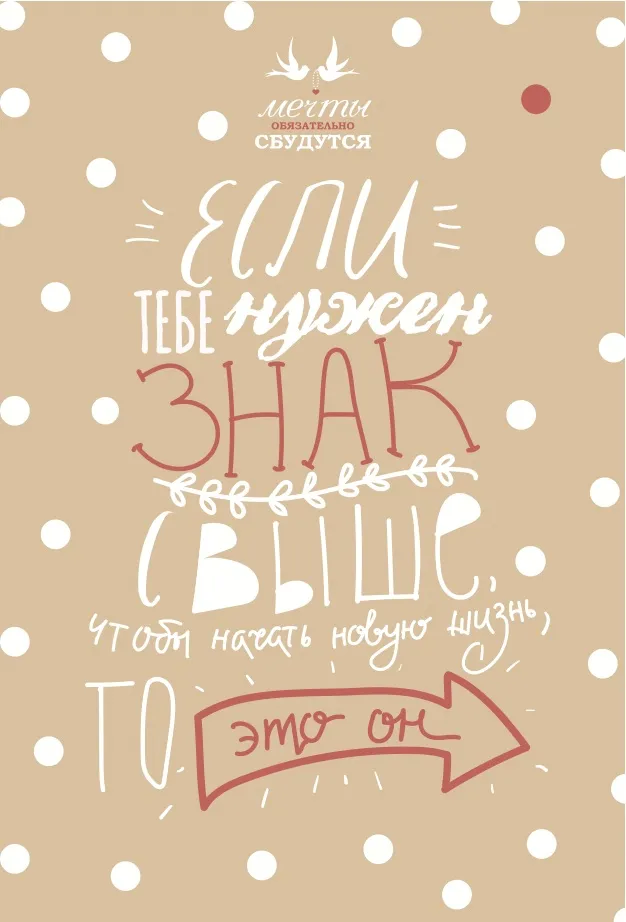 мечты
ОБЯЗАТЕЛЬНО
СБУДУТСЯ
ЕСЛИ
ТЕБЕ нужен
ЗНАК
СВЫШЕ,
чтобы начать новую жизнь,
ТО это он